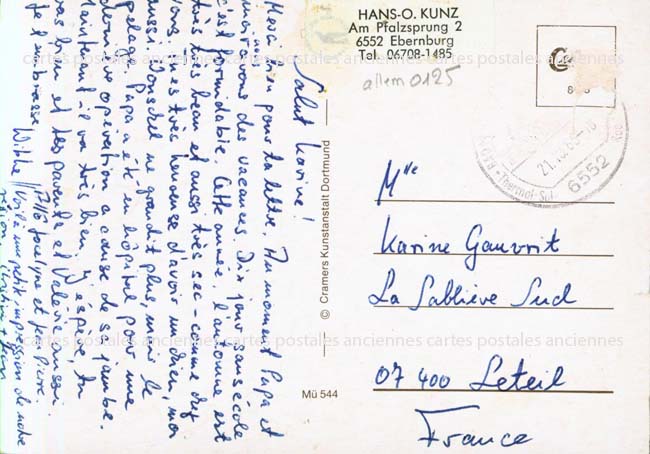 HANS-O. KUNZ
Am Pfalzsprung 2
6552 Ebernburg
Tel. 06708-1485
allem 0125
Salut Karine!
Merci bien pour ta lettre. Au moment Papa et
moi avons des vacances. Dix jour sans école
c'est formidable. Cette année, l'automne est
très très beau et aussi très sec - comme
Vous êtes très heureuse d'avoir un chien, moi
aussi. ne grandit plus, mais le
pelage. Papa a été en hôpital pour une
opération a cause de sa jambe.
Maintenant il va très bien. J'espère tu
vas bien et tes parents et Valérie aussi.
Je t'embrasse Wibke
Allô Jocelyne et Jean Pierre,
Voilà une petite impression de notre
région
© Cramers Kunstanstalt Dortmund
Mü 544
21.10.
6552
Mlle
Karine Gauvrit
La Sablière Sud
07 400 Leteil
France
cartes postales anciennes cartes postales anciennes cartes postales anciennes
cartes postales anciennes cartes postales anciennes cartes postales anciennes